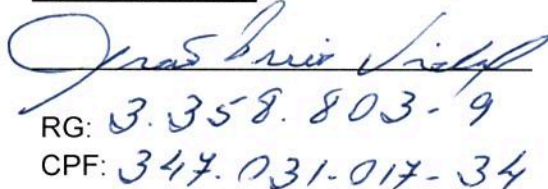 RG: 3.358.803-9
CPF: 347.031.017-34